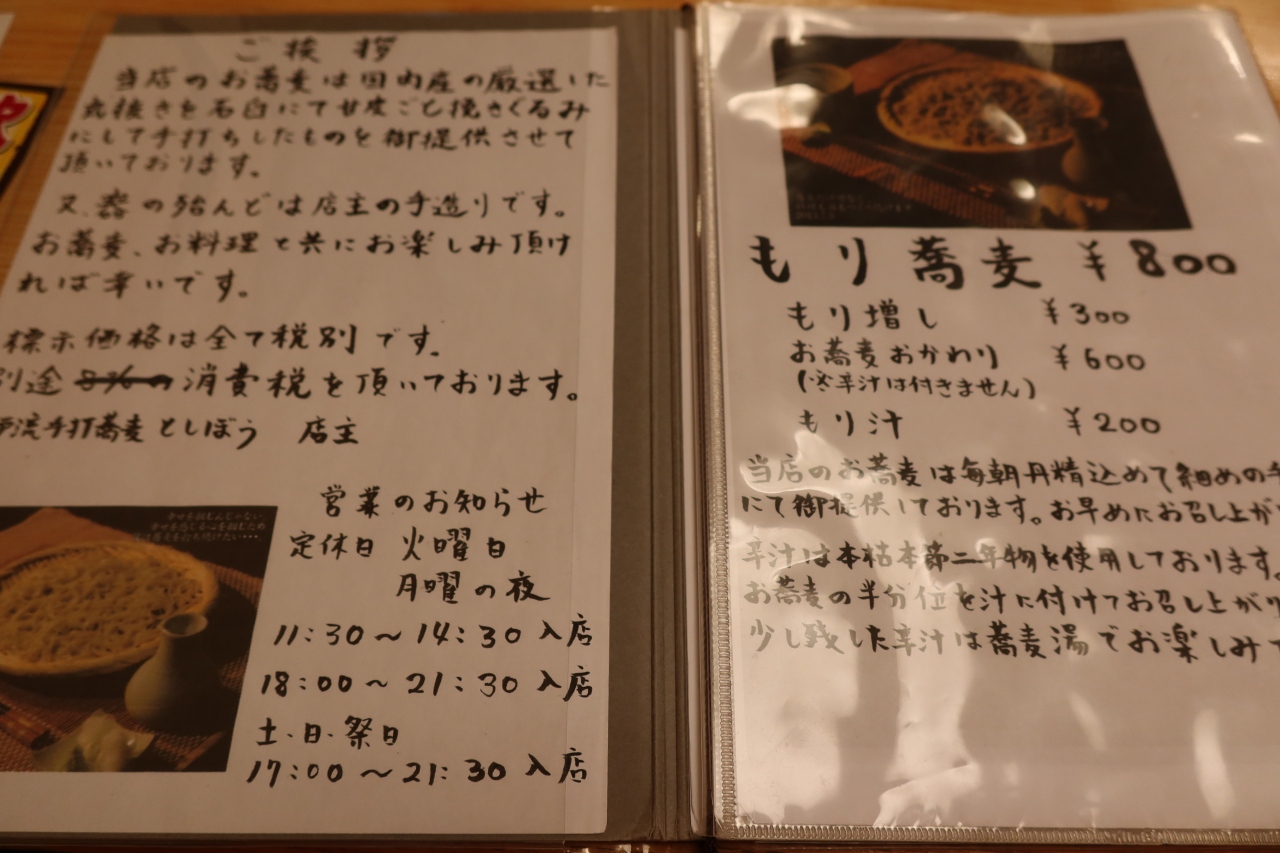 ご挨拶
当店のお蕎麦は国内産の厳選した
丸抜きを石臼にて甘皮ごと挽きぐるみ
にして手打ちしたものを御提供させて
頂いております。
又、器の殆んどは店主の手造りです。
お蕎麦、お料理と共にお楽しみ頂け
れば幸いです。
標示価格は全て税別です。
別途 8%の 消費税を頂いております。
流手打蕎麦 としぼう 店主
営業のお知らせ
定休日 火曜日
月曜の夜
11:30〜14:30入店
18:00〜21:30入店
土.日.祭日
17:00〜21:30入店
幸せを感じる心を
もり蕎麦 ¥800
もり増し ¥300
お蕎麦おかわり ¥600
(※辛汁は付きません)
もり汁 ¥200
当店のお蕎麦は毎朝丹精込めて細めの手
にて御提供しております。お早めにお召し上が
辛汁は本枯本節二年物を使用しております。
お蕎麦の半分位を汁に付けてお召し上がり
少し残した辛汁は蕎麦湯でお楽しみ